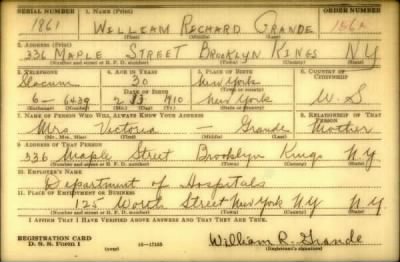 SERIAL NUMBER 1. NAME (Print) ORDER NUMBER
1861 WILLIAM RICHARD GRANDE 156A
(First) (Middle) (Last)
2. ADDRESS (Print)
336 MAPLE STREET BROOKLYN KINGS NY
(Number and street or R. F. D. number) (Town) (County) (State)
3. TELEPHONE 4. AGE IN YEARS 5. PLACE OF BIRTH 6. COUNTRY OF CITIZENSHIP
Slocum 30 New York
DATE OF BIRTH (Town or county)
6-6439 2 13 1910 New York U.S
(Exchange) (Number) (Mo.) (Day) (Yr.) (State or country)
7. NAME OF PERSON WHO WILL ALWAYS KNOW YOUR ADDRESS 8. RELATIONSHIP OF THAT PERSON
Mrs Victoria Grande Mother
(Mr., Mrs., Miss) (First) (Middle) (Last)
9. ADDRESS OF THAT PERSON
336 Maple Street Brooklyn Kings NY
(Number and street or R. F. D. number) (Town) (County) (State)
10. EMPLOYER'S NAME
Department of Hospitals
11. PLACE OF EMPLOYMENT OR BUSINESS
125 Worth Street New York NY NY.
(Number and street or R. F. D. number) (Town) (County) (State)
I AFFIRM THAT I HAVE VERIFIED ABOVE ANSWERS AND THAT THEY ARE TRUE.
REGISTRATION CARD
D. S. S. Form 1 (over) 16-17105 William R. Grande
(Registrant's signature)